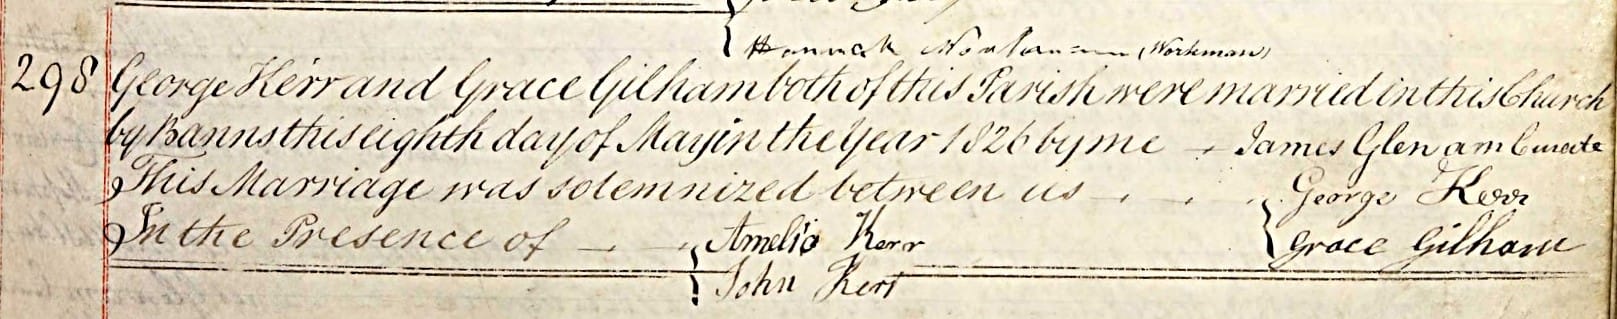 Hannah (Workman)
298 George Kerr and Grace Gilham both of this Parish were married in this Church
by Banns this eighth day of May in the Year 1826 by me James Glen a m Curate
This Marriage was solemnized between us George Kerr
In the Presence of Amelia Kerr Grace Gilham
John Kerr